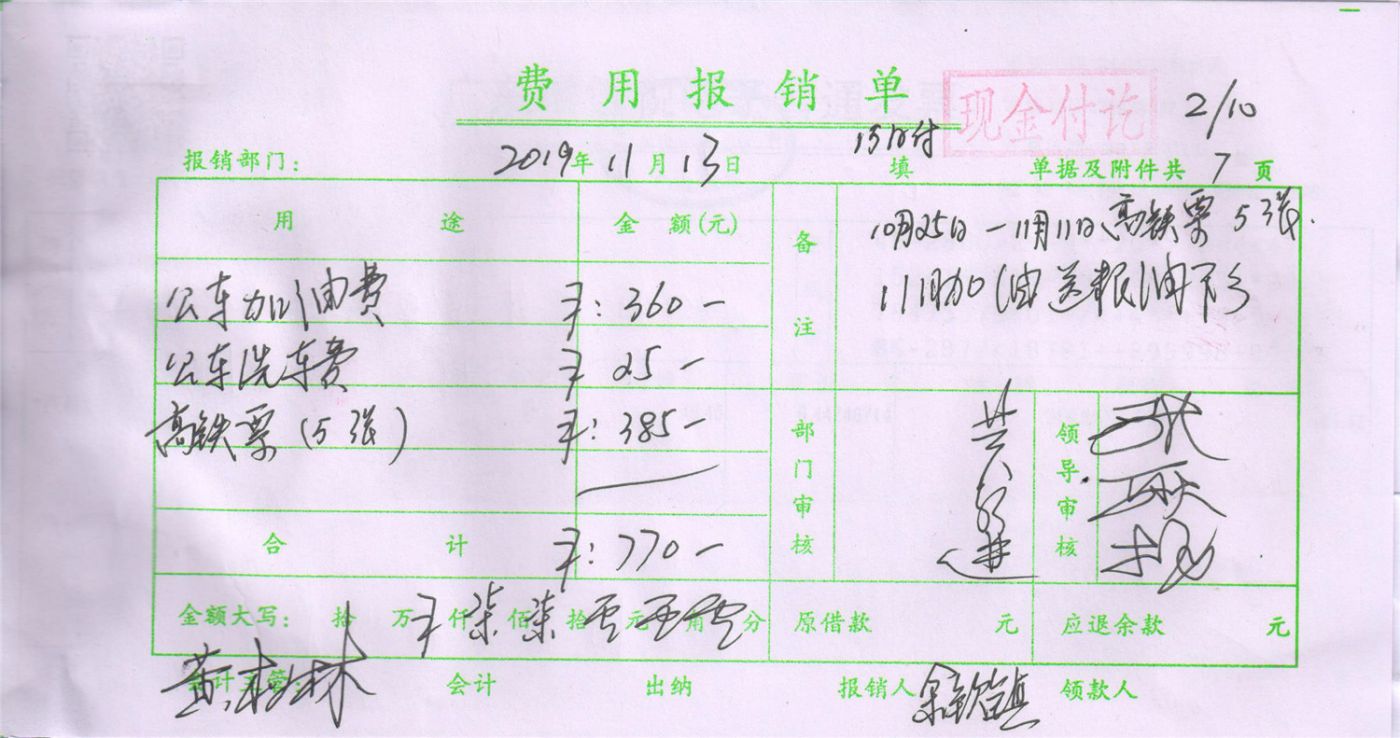 费用报销单
现金付讫
2/10
15日付
报销部门： 2019年 11月 13日 填 单据及附件共 7 页
用途 金额(元) 备注
10月25日—11月11日高铁票5张.
11月加油送粮油下乡
公车加油费 ¥：360—
公车洗车费 ¥ 25—
高铁票(5张) ¥：385—
部门审核 领导审核
合计 ¥：770—
金额大写： 拾 万 ¥ 仟 柒 佰 柒 拾 零 元 零 角 零 分 原借款 元 应退余款 元
会计主管： 黄桂林 会计 出纳 报销人 领款人